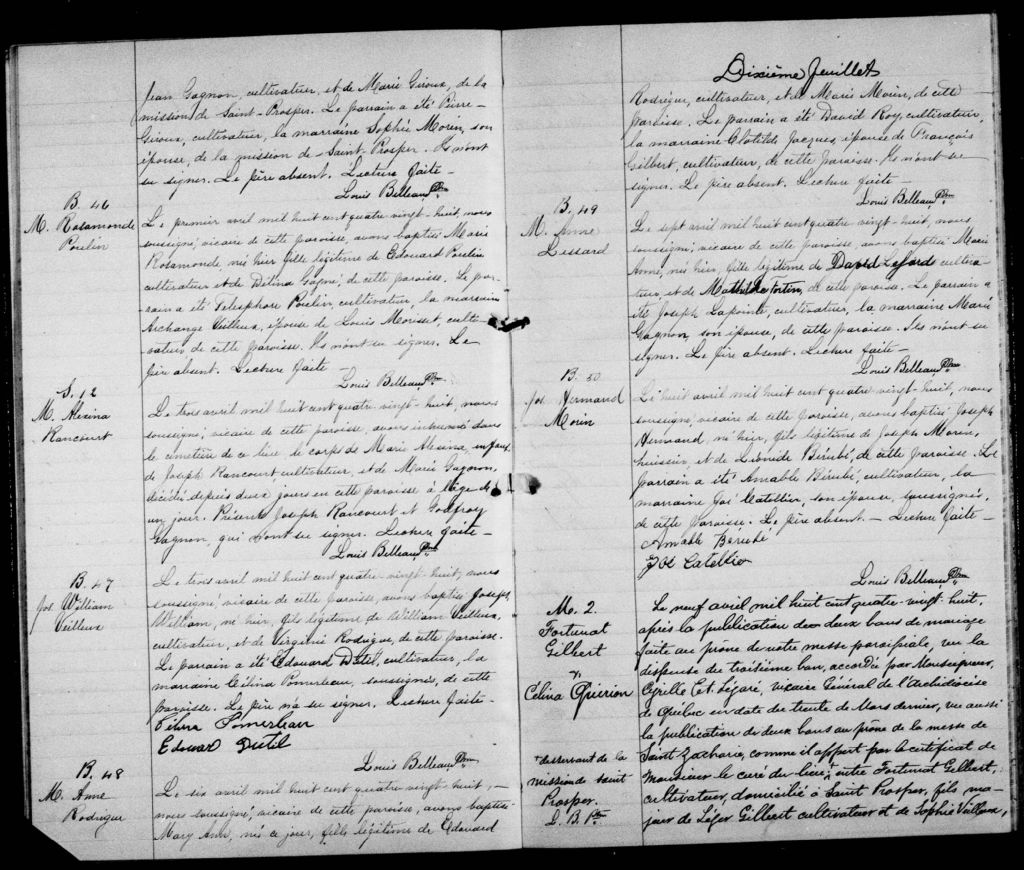 Jean Gagnon, cultivateur, et de Marie Giroux, de la
mission de Saint-Prosper. Le parrain a été Pierre
Giroux, cultivateur, la marraine Sophie Morin, son
épouse, de la mission de Saint Prosper. Ils n'ont
su signer. Le père absent. Lecture faite -
Louis Belleau Ptre
B. 46
M. Rosamonde
Poulin
Le premier avril mil huit cent quatre-vingt-huit, nous
soussigné, vicaire de cette paroisse, avons baptisé Marie
Rosamonde, née hier, fille légitime de Edouard Poulin
cultivateur et de Délina Gagné, de cette paroisse. Le par-
rain a été Télesphore Poulin cultivateur, la marraine
Archange Veilleux, épouse de Louis Morisset, culti-
vateur de cette paroisse. Ils n'ont su signer. Le
père absent. Lecture faite -
Louis Belleau Ptre
S. 12
M. Alexina
Rancourt
Le trois avril mil huit cent quatre-vingt-huit, nous
soussigné, vicaire de cette paroisse, avons inhumé dans
le cimetière de ce lieu le corps de Marie Alexina, enfant
de Joseph Rancourt, cultivateur, et de Marie Gagnon,
décédée depuis deux jours en cette paroisse à l'âge de
un jour. Présents Joseph Rancourt et Godfroy
Gagnon, qui n'ont su signer. Lecture faite -
Louis Belleau Ptre
B. 47
Jos. William
Veilleux
Le trois avril mil huit cent quatre-vingt-huit, nous
soussigné, vicaire de cette paroisse, avons baptisé Joseph
William, né hier, fils légitime de William Veilleux,
cultivateur, et de Virginie Rodrigue, de cette paroisse.
Le parrain a été Edouard Dutil, cultivateur, la
marraine Célina Pomerleau, soussignés, de cette
paroisse. Le père n'a su signer. Lecture faite -
Célina Pomerleau
Edouard Dutil
Louis Belleau Ptre
B. 48
M. Anne
Rodrigue
Le six avril mil huit cent quatre-vingt-huit, -
nous soussigné, vicaire de cette paroisse, avons baptisé
Mary Ann, née ce jour, fille légitime de Edouard
Dixième feuillet
Rodrigue, cultivateur, et de Marie Morin, de cette
paroisse. Le parrain a été David Roy, cultivateur,
la marraine Clotilde Jacques, épouse de François
Gilbert, cultivateur, de cette paroisse. Ils n'ont su
signer. Le père absent. Lecture faite -
Louis Belleau Ptre
B. 49
M. Anne
Lessard
Le sept avril mil huit cent quatre-vingt-huit, nous
soussigné, vicaire de cette paroisse, avons baptisé Marie
Anne, née hier, fille légitime de David Lessard cultiva-
teur, et de Mathilde Fortin, de cette paroisse. Le parrain a
été Joseph Lapointe, cultivateur, la marraine Marie
Gagnon, son épouse, de cette paroisse. Ils n'ont su
signer. Le père absent. Lecture faite -
Louis Belleau Ptre
B. 50
Jos. Hermand
Morin
Le huit avril mil huit cent quatre-vingt-huit, nous
soussigné, vicaire de cette paroisse, avons baptisé Joseph
Hermand, né hier, fils légitime de Joseph Morin,
huissier, et de Léonide Bérubé, de cette paroisse. Le
parrain a été Amable Bérubé, cultivateur, la
marraine Jos Catellier, son épouse, soussignés,
de cette paroisse. Le père absent. - Lecture faite -
Amable Bérubé
Jos Catellier
Louis Belleau Ptre
M. 2.
Fortunat
Gilbert
&
Celina Quirion
Le neuf avril mil huit cent quatre-vingt-huit,
après la publication de deux bans de mariage
faite au prône de notre messe paroissiale, vu la
dispense du troisième ban, accordée par Monseigneur
Cyrille Et. Légaré, vicaire Général de l'Archidiocèse
de Québec en date du trente de Mars dernier, vu aussi
la publication de deux bans au prône de la messe de
Saint Zacharie, comme il appert par le certificat de
Monsieur le curé du lieu,+ entre Fortunat Gilbert,
cultivateur, domicilié à Saint Prosper, fils ma-
jeur de Léger Gilbert cultivateur et de Sophie Veilleux,
+ desservant de la
mission de Saint
Prosper.
L. B. Ptre